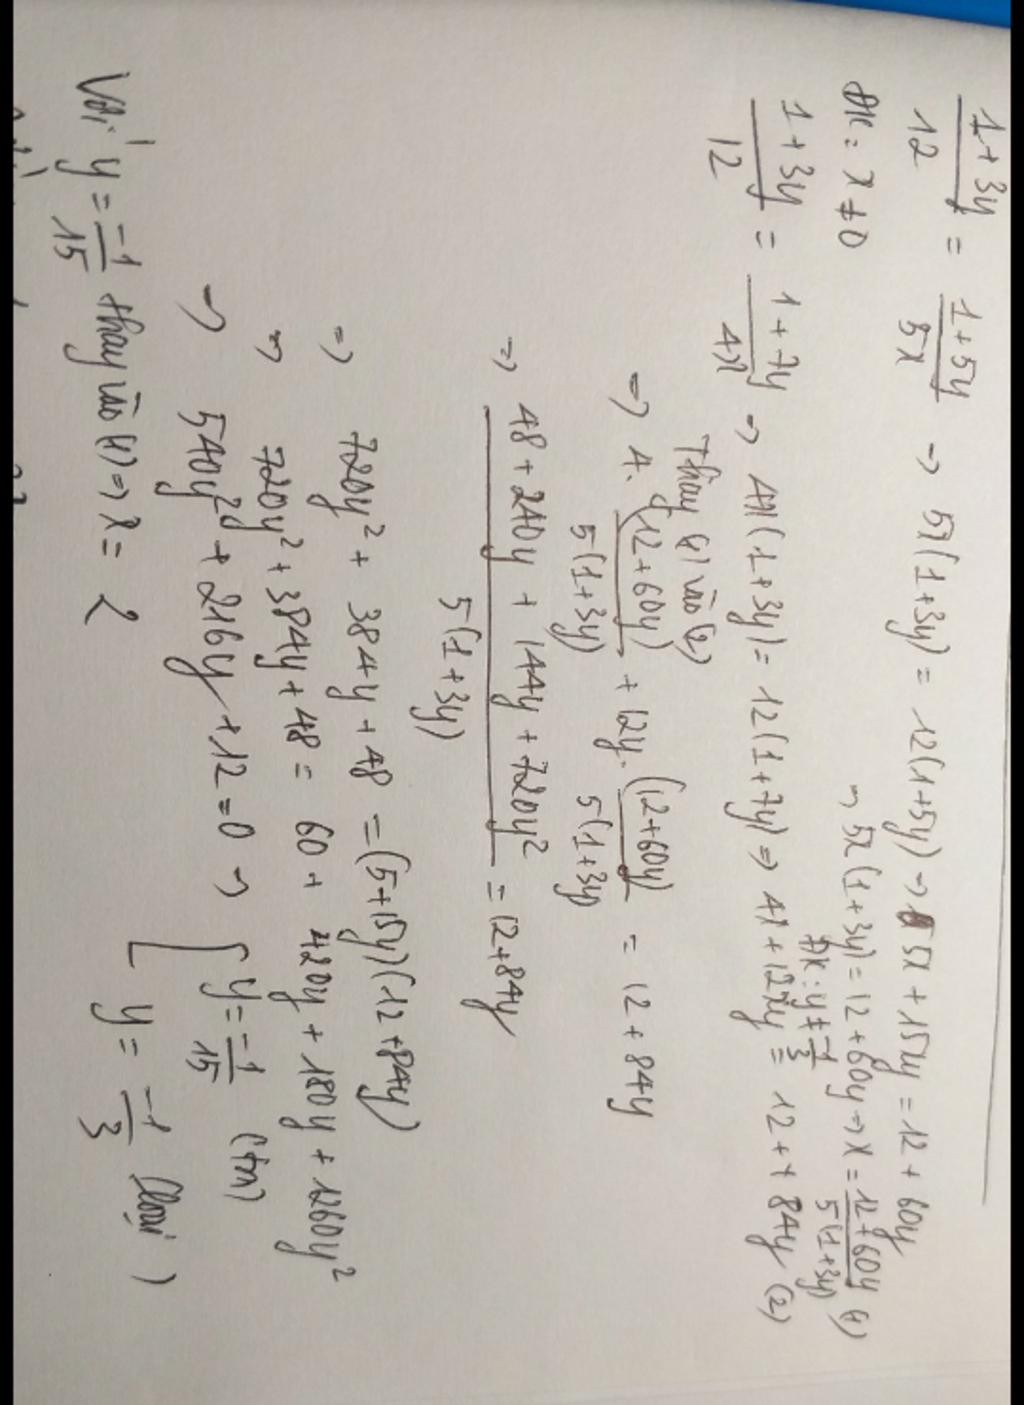 1+3y/12 = 1+5y/5x → 5x(1+3y) = 12(1+5y) → 5x + 15xy = 12 + 60y
→ 5x(1+3y) = 12+60y → x = 12+60y/5(1+3y) (1)
ĐK: x ≠ 0
ĐK: y ≠ -1/3
1+3y/12 = 1+7y/4x → 4x(1+3y) = 12(1+7y) → 4x+12xy = 12+ 84y (2)
Thay (1) vào (2)
→ 4. (12+60y)/5(1+3y) + 12y. (12+60y)/5(1+3y) = 12 + 84y
→ 48+240y + 144y + 720y²/5(1+3y) = 12+84y
→ 720y² + 384y + 48 = (5+15y)(12+84y)
→ 720y² + 384y + 48 = 60 + 420y + 180y + 1260y²
→ 540y² + 216y + 12 = 0 → [ y = -1/15 (tm)
y = -1/3 (loại)
Với y = -1/15 thay vào (1) → x = 2